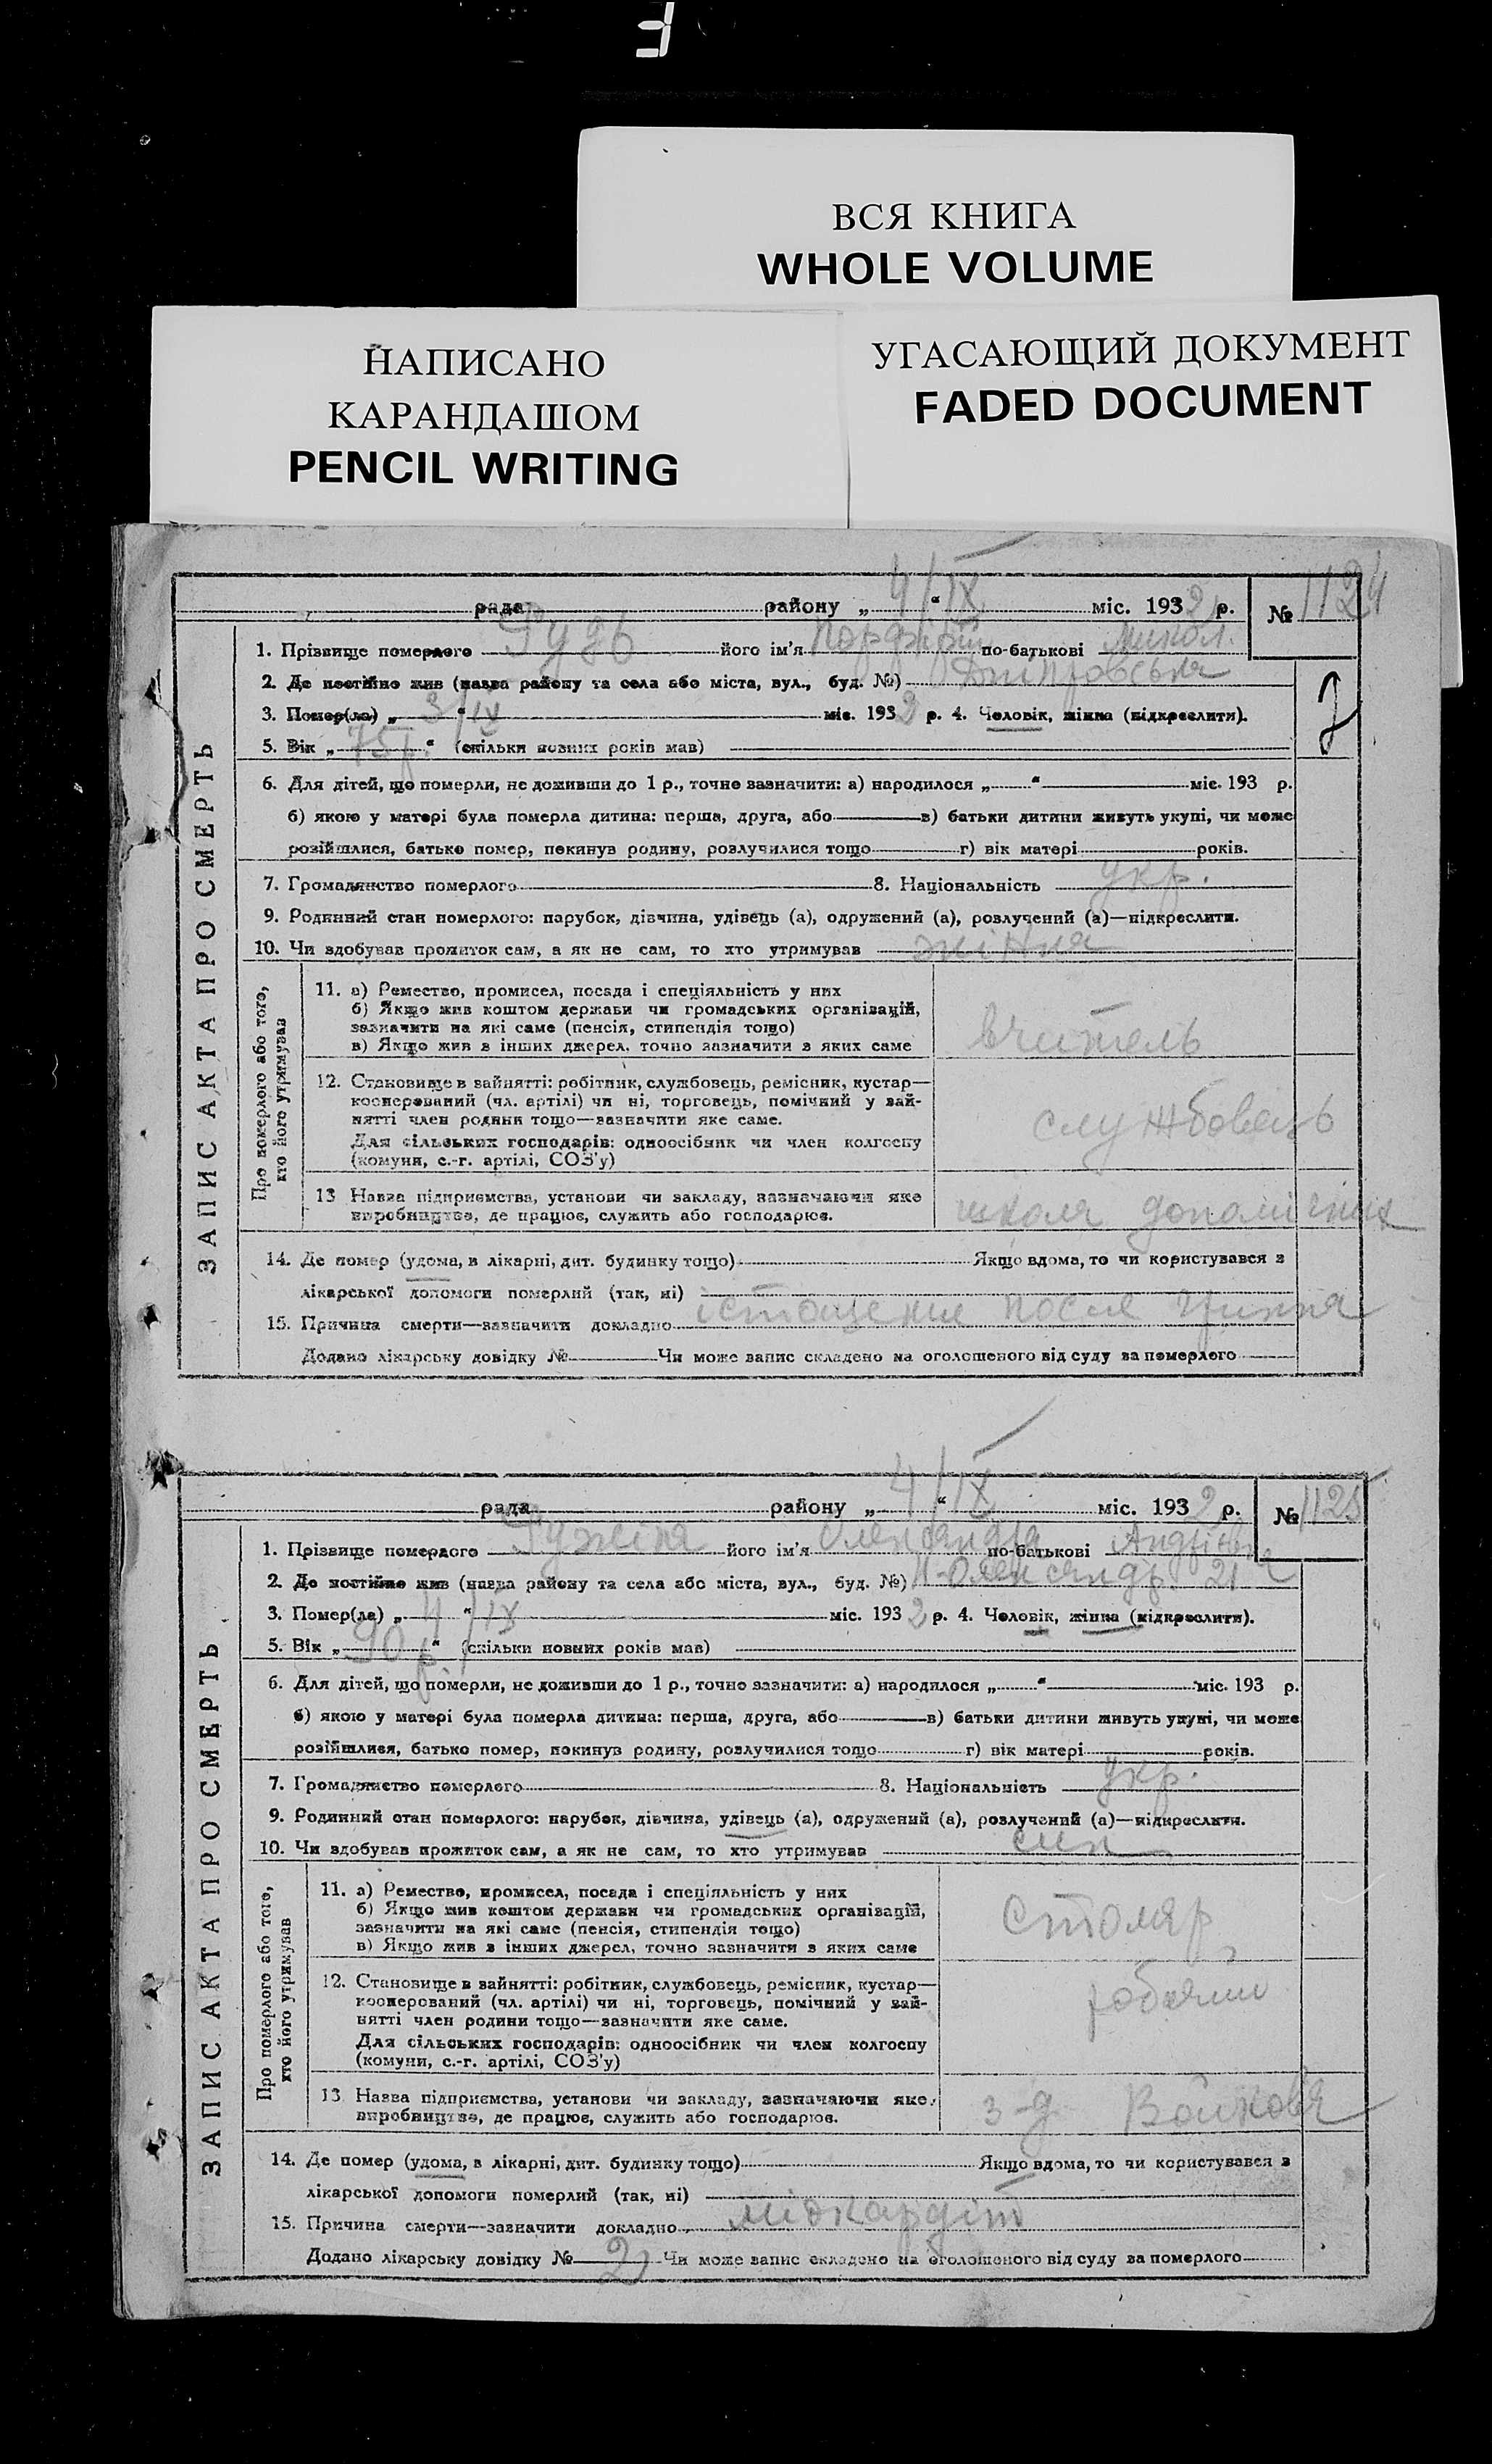 ВСЯ КНИГА
WHOLE VOLUME
НАПИСАНО
КАРАНДАШОМ
PENCIL WRITING
УГАСАЮЩИЙ ДОКУМЕНТ
FADED DOCUMENT
рада району „ 4/IX “ міс. 1932 р. № 1124
1. Прізвище померлого його ім'я Порфірій по-батькові Микол.
2. Де постійно жив (назва району та села або міста, вул., буд. №) Дніпровська
3. Помер(ла) „ 3/IX “ міс. 1932 р. 4. Чоловік, жінка (підкреслити).
5. Вік „ 75 р. “ (скільки повних років мав)
6. Для дітей, що померли, не доживши до 1 р., точно зазначити: а) народилося „ “ міс. 193 р.
б) якою у матері була померла дитина: перша, друга, або в) батьки дитини живуть укупі, чи може
розійшлися, батько помер, покинув родину, розлучилися тощо г) вік матері років.
7. Громадянство померлого 8. Національність укр.
9. Родинний стан померлого: парубок, дівчина, удівець (а), одружений (а), розлучений (а)—підкреслити.
10. Чи здобував прожиток сам, а як не сам, то хто утримував жінка
ЗАПИС АКТА ПРО СМЕРТЬ
Про померлого або того,
хто його утримував
11. а) Ремество, промисел, посада і спеціяльність у них
б) Якщо жив коштом держави чи громадських організацій,
зазначити на які саме (пенсія, стипендія тощо)
в) Якщо жив з інших джерел, точно зазначити з яких саме
вчитель
12. Становище в зайнятті: робітник, службовець, ремісник, кустар—
кооперований (чл. артілі) чи ні, торговець, помічний у зай-
нятті член родини тощо—зазначити яке саме.
Для сільських господарів: одноосібник чи член колгоспу
(комуни, с.-г. артілі, СОЗ'у)
службовець
13 Назва підприємства, установи чи закладу, зазначаючи яке
виробництво, де працює, служить або господарює.
школа
14. Де помер (удома, в лікарні, дит. будинку тощо) Якщо вдома, то чи користувався з
лікарської допомоги померлий (так, ні)
15. Причина смерти—зазначити докладно істощение после гриппа
Додано лікарську довідку № Чи може запис складено на оголошеного від суду за померлого
рада району „ 4/IX “ міс. 1932 р. № 1125
1. Прізвище померлого його ім'я Олександра по-батькові Андріївна
2. Де постійно жив (назва району та села або міста, вул., буд. №) Н-Олександр. 21
3. Помер(ла) „ 4/IX “ міс. 1932 р. 4. Чоловік, жінка (підкреслити).
5. Вік „ 90 р. “ (скільки повних років мав)
6. Для дітей, що померли, не доживши до 1 р., точно зазначити: а) народилося „ “ міс. 193 р.
б) якою у матері була померла дитина: перша, друга, або в) батьки дитини живуть укупі, чи може
розійшлися, батько помер, покинув родину, розлучилися тощо г) вік матері років.
7. Громадянство померлого 8. Національність укр.
9. Родинний стан померлого: парубок, дівчина, удівець (а), одружений (а), розлучений (а)—підкреслити.
10. Чи здобував прожиток сам, а як не сам, то хто утримував син
ЗАПИС АКТА ПРО СМЕРТЬ
Про померлого або того,
хто його утримував
11. а) Ремество, промисел, посада і спеціяльність у них
б) Якщо жив коштом держави чи громадських організацій,
зазначити на які саме (пенсія, стипендія тощо)
в) Якщо жив з інших джерел, точно зазначити з яких саме
столяр
12. Становище в зайнятті: робітник, службовець, ремісник, кустар—
кооперований (чл. артілі) чи ні, торговець, помічний у зай-
нятті член родини тощо—зазначити яке саме.
Для сільських господарів: одноосібник чи член колгоспу
(комуни, с.-г. артілі, СОЗ'у)
13 Назва підприємства, установи чи закладу, зазначаючи яке
виробництво, де працює, служить або господарює.
з-д Войкова
14. Де помер (удома, в лікарні, дит. будинку тощо) Якщо вдома, то чи користувався з
лікарської допомоги померлий (так, ні)
15. Причина смерти—зазначити докладно міокардіт
Додано лікарську довідку № 2) Чи може запис складено на оголошеного від суду за померлого